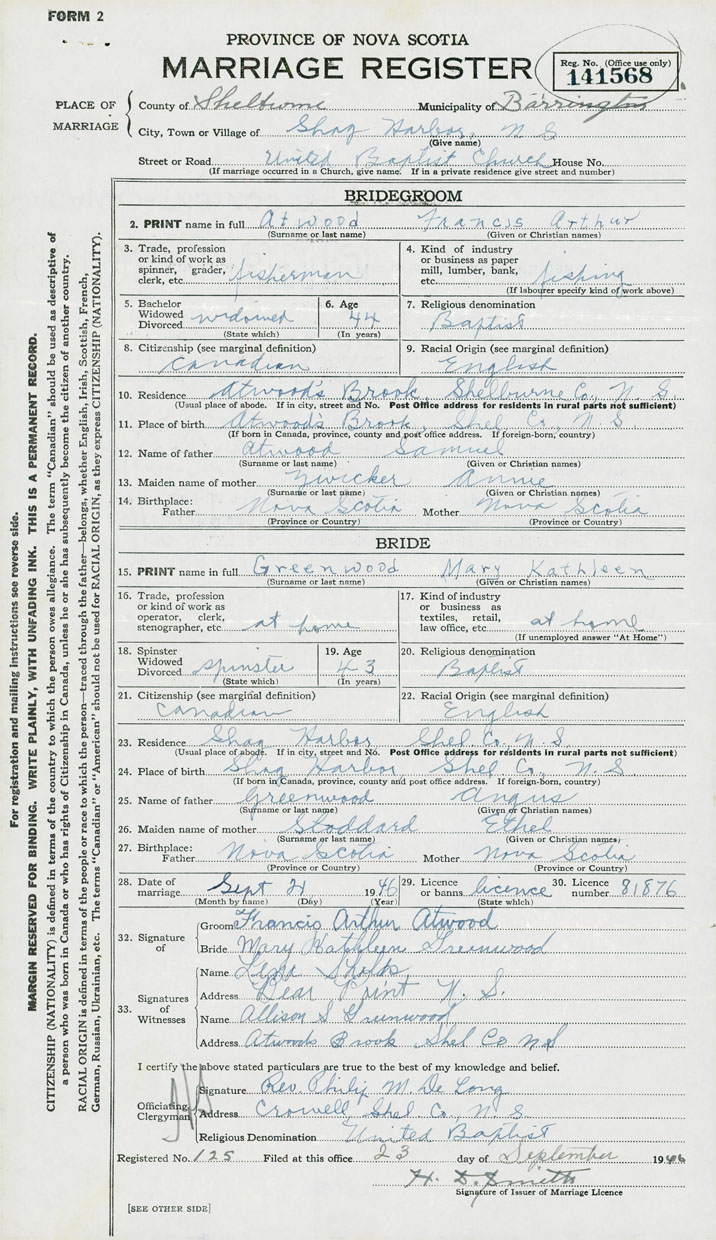 FORM 2
PROVINCE OF NOVA SCOTIA
MARRIAGE REGISTER
Reg. No. (Office use only)
141568
PLACE OF MARRIAGE
County of Shelburne Municipality of Barrington
City, Town or Village of Shag Harbor, N S
(Give name)
Street or Road United Baptist Church House No.
(If marriage occurred in a Church, give name. If in a private residence give street and number)
BRIDEGROOM
2. PRINT name in full Atwood Francis Arthur
(Surname or last name) (Given or Christian names)
3. Trade, profession or kind of work as spinner, grader, clerk, etc. fisherman
4. Kind of industry or business as paper mill, lumber, bank, etc. fishing
(If labourer specify kind of work above)
5. Bachelor Widowed Divorced widowed
(State which)
6. Age 44
(In years)
7. Religious denomination
Baptist
8. Citizenship (see marginal definition)
Canadian
9. Racial Origin (see marginal definition)
English
10. Residence Atwood's Brook, Shelburne Co., N. S.
(Usual place of abode. If in city, street and No. Post Office address for residents in rural parts not sufficient)
11. Place of birth Atwood's Brook, Shel Co., N. S
(If born in Canada, province, county and post office address. If foreign-born, country)
12. Name of father Atwood Samuel
(Surname or last name) (Given or Christian names)
13. Maiden name of mother Zwicker Annie
(Surname or last name) (Given or Christian names)
14. Birthplace:
Father Nova Scotia Mother Nova Scotia
(Province or Country) (Province or Country)
BRIDE
15. PRINT name in full Greenwood Mary Kathleen
(Surname or last name) (Given or Christian names)
16. Trade, profession or kind of work as operator, clerk, stenographer, etc. at home
17. Kind of industry or business as textiles, retail, law office, etc. at home
(If unemployed answer "At Home")
18. Spinster Widowed Divorced spinster
(State which)
19. Age 43
(In years)
20. Religious denomination
Baptist
21. Citizenship (see marginal definition)
Canadian
22. Racial Origin (see marginal definition)
English
23. Residence Shag Harbor Shel Co., N. S.
(Usual place of abode. If in city, street and No. Post Office address for residents in rural parts not sufficient)
24. Place of birth Shag Harbor Shel Co., N. S
(If born in Canada, province, county and post office address. If foreign-born, country)
25. Name of father Greenwood Angus
(Surname or last name) (Given or Christian names)
26. Maiden name of mother Stoddard Ethel
(Surname or last name) (Given or Christian names)
27. Birthplace:
Father Nova Scotia Mother Nova Scotia
(Province or Country) (Province or Country)
28. Date of marriage Sept 21 1946
(Month by name) (Day) (Year)
29. Licence or banns licence
(State which)
30. Licence number 81876
32. Signature of
Groom Francis Arthur Atwood
Bride Mary Kathleen Greenwood
33. Signatures of Witnesses
Name Lena
Address Bear Point N. S.
Name Allison S Greenwood
Address Atwoods Brook Shel Co NS
I certify the above stated particulars are true to the best of my knowledge and belief.
Officiating Clergyman
Signature Rev. Philip M. De Long
Address Crowell, Shel Co., N. S
Religious Denomination United Baptist
Registered No. 125 Filed at this office 23 day of September 1946
H. D. Smith
Signature of Issuer of Marriage Licence
[SEE OTHER SIDE]
For registration and mailing instructions see reverse side.
MARGIN RESERVED FOR BINDING. WRITE PLAINLY, WITH UNFADING INK. THIS IS A PERMANENT RECORD.
CITIZENSHIP (NATIONALITY) is defined in terms of the country to which the person owes allegiance. The term "Canadian" should be used as descriptive of
a person who was born in Canada or who has rights of Citizenship in Canada, unless he or she has subsequently become the citizen of another country.
RACIAL ORIGIN is defined in terms of the people or race to which the person—traced through the father—belongs, whether English, Irish, Scottish, French,
German, Russian, Ukrainian, etc. The terms "Canadian" or "American" should not be used for RACIAL ORIGIN, as they express CITIZENSHIP (NATIONALITY).